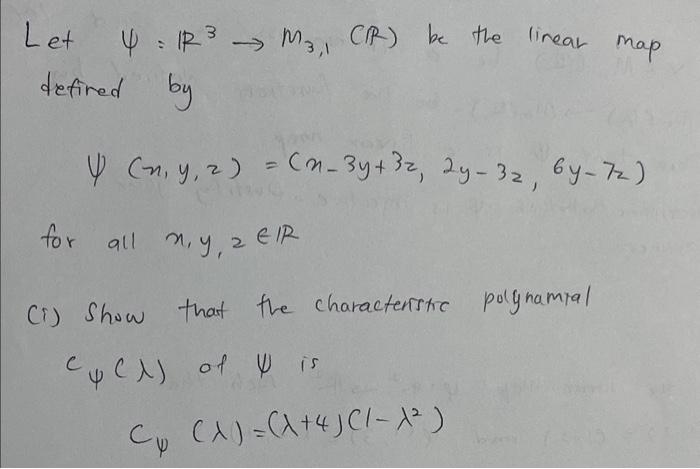 Let ψ : ℝ³ → M₃,₁ (ℝ) be the linear map
defined by
ψ (x, y, z) = (x - 3y + 3z, 2y - 3z, 6y - 7z)
for all x, y, z ∈ ℝ
(i) Show that the characteristic polynamial
c_ψ (λ) of ψ is
c_ψ (λ) = (λ + 4)(1 - λ²)